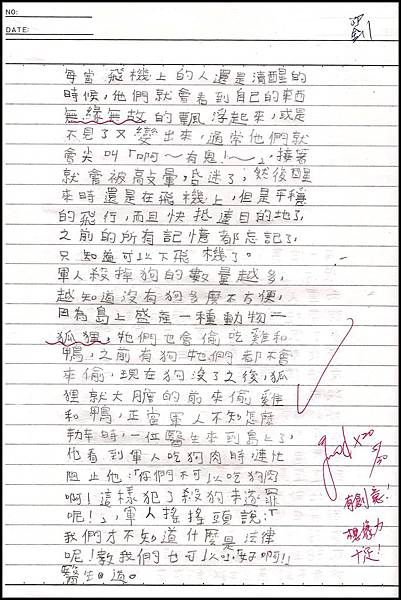 NO:
DATE:
劉
每當飛機上的人還是清醒的
時候,他們就會看到自己的東西
無緣無故的飄浮起來,或是
不見了又變出來,通常他們就
會尖叫「啊～有鬼!～」,接著
就會被敲暈,昏迷了,然後醒
來時還是在飛機上,但是平穩
的飛行,而且快抵達目的地了,
之前的所有記憶都忘記了,
只知道可以下飛機了。
軍人殺掉狗的數量越多,
越知道沒有狗多麼不方便,
因為島上盛產一種動物—
狐狸,牠們也會偷吃雞和
鴨,之前有狗牠們都不會
來偷,現在狗沒了之後,狐
狸就大膽的前來偷雞
和鴨,正當軍人不知怎麼
辦時,一位醫生來到島上了,
他看到軍人吃狗肉時連忙
阻止他:「你們不可以吃狗肉
啊!這樣犯了殺狗來造罪
呢!」,軍人搖搖頭說:「
我們才不知道什麼是法律
呢!教我們也可以,好啊!」
醫生道。
good x20
5/30
有創意!
想像力
十足!